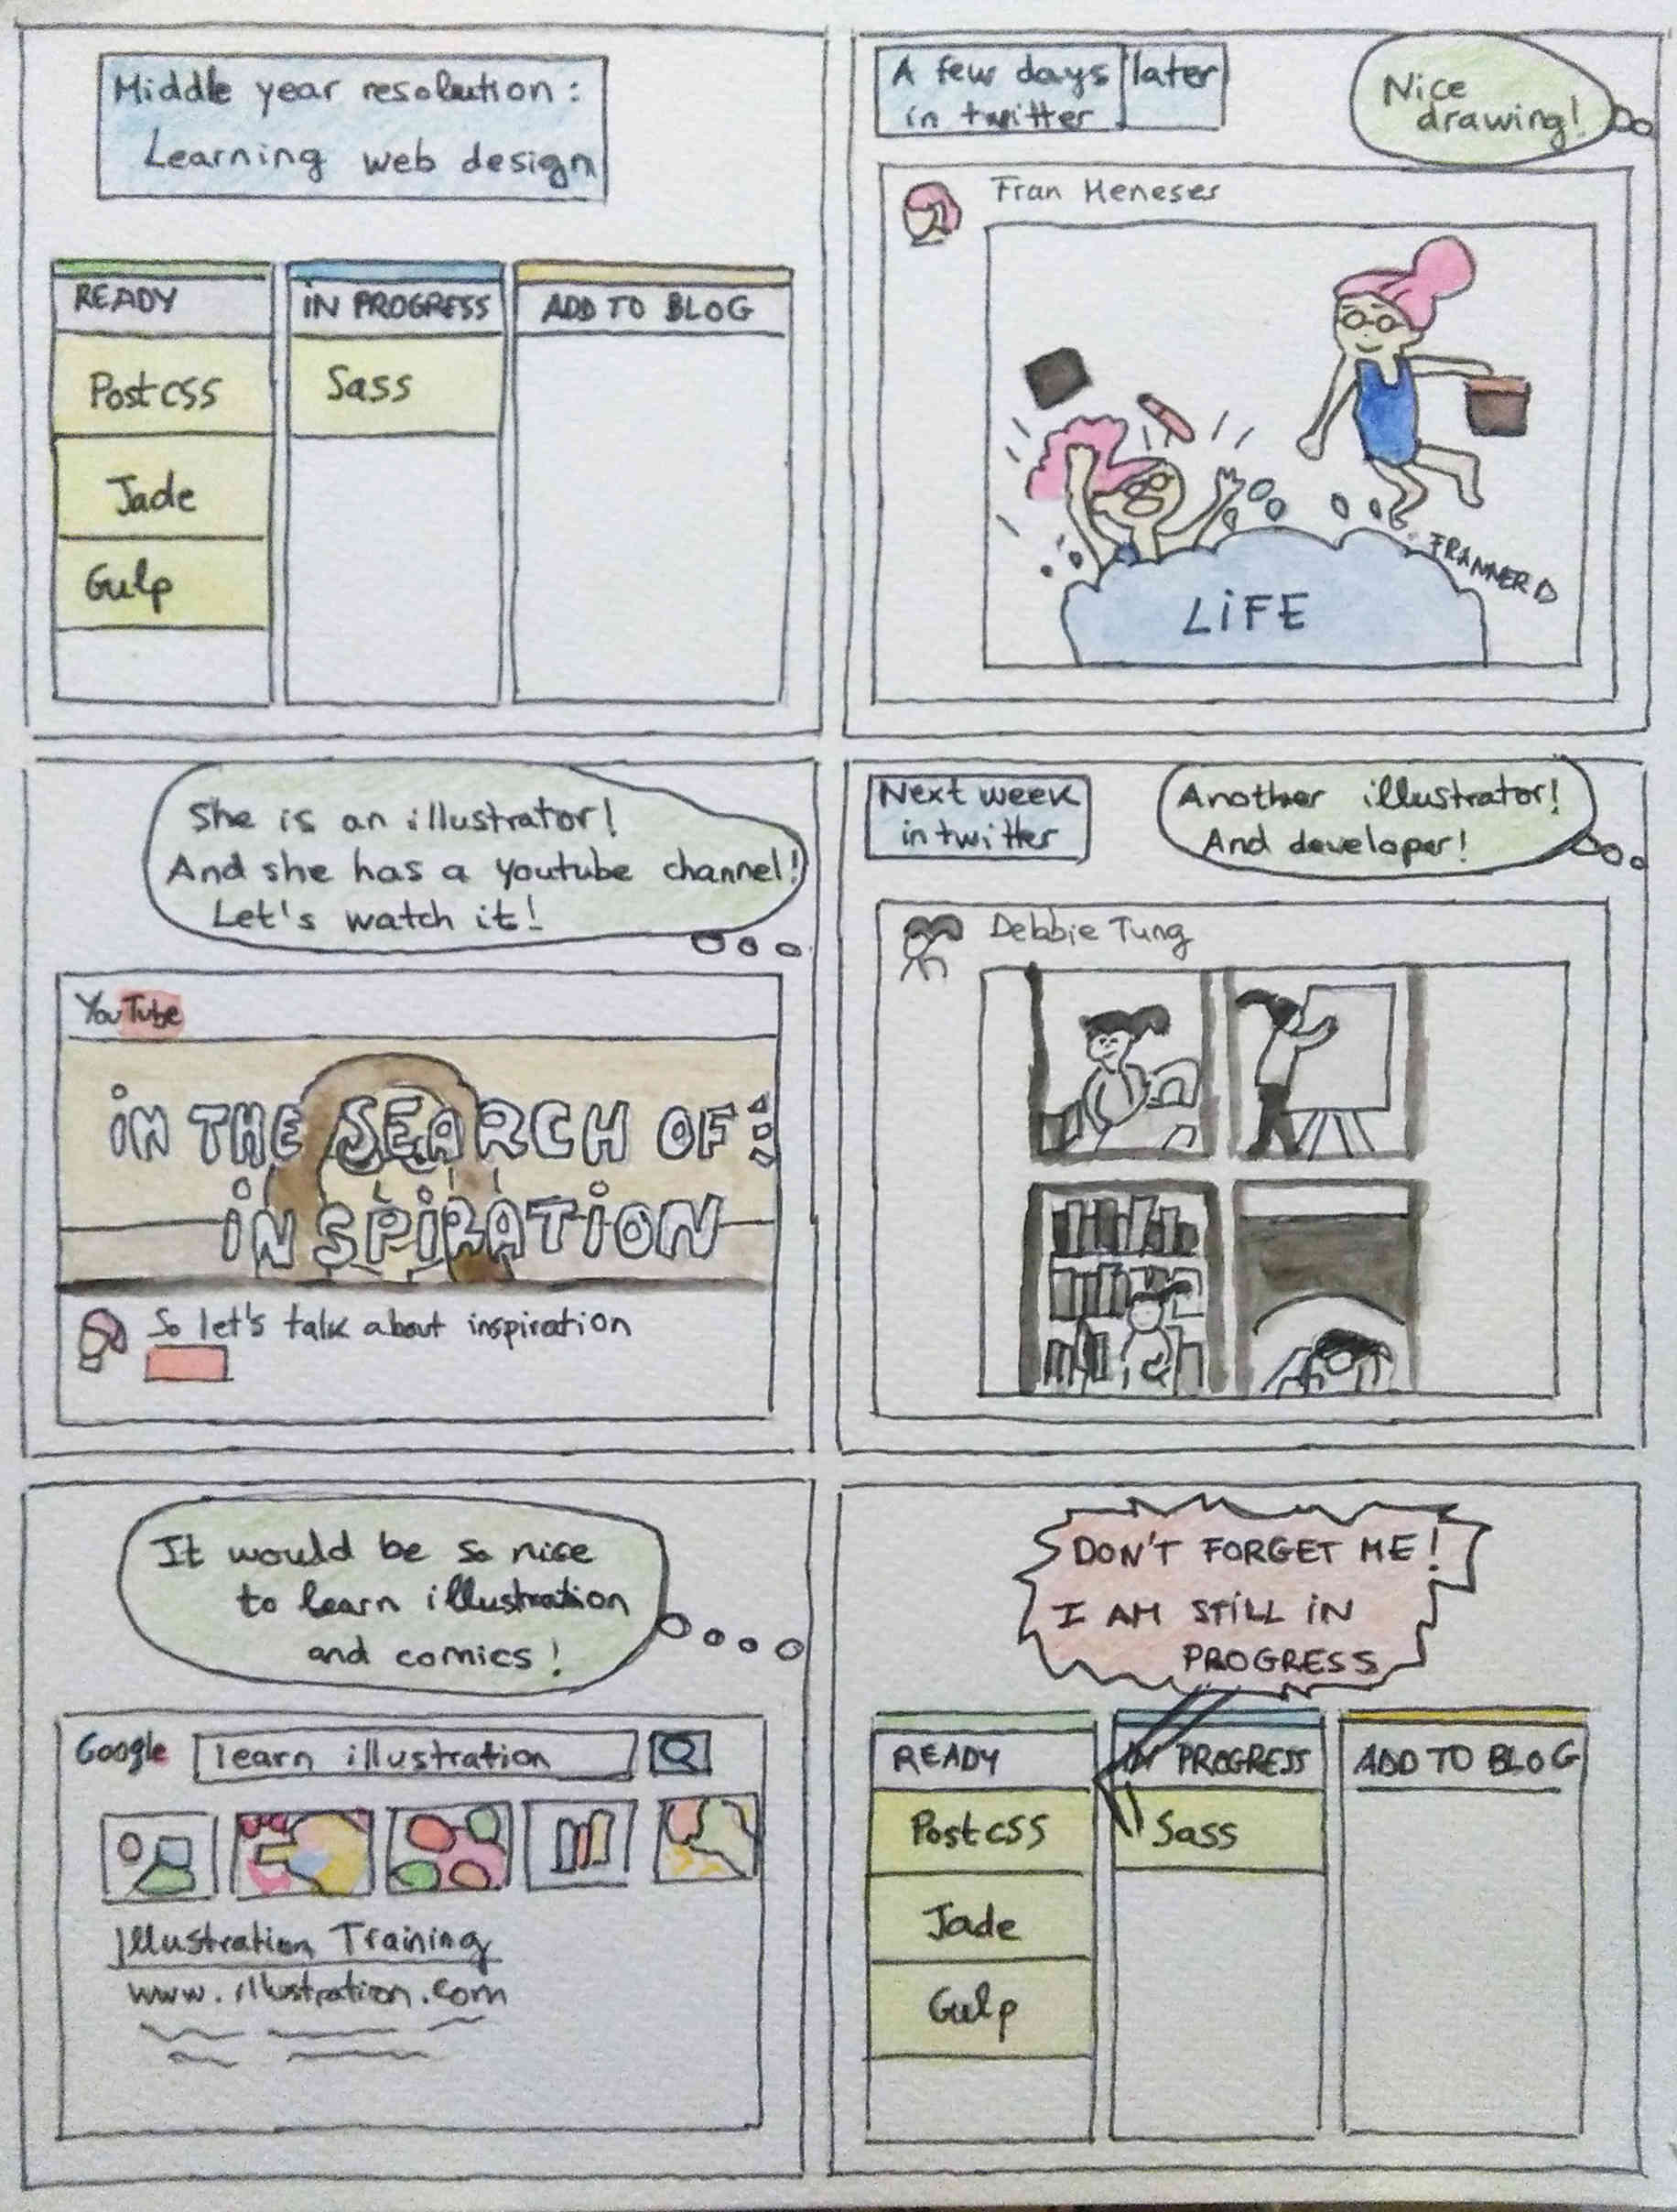 Middle year resolution:
Learning web design
READY
IN PROGRESS
ADD TO BLOG
Postcss
Sass
Jade
Gulp
A few days later
in twitter
Nice
drawing!
Fran Meneses
LiFE
FRANNERD
She is an illustrator!
And she has a youtube channel!
Let's watch it!
YouTube
iN THE SEARCH OF:
iNSPiRATiON
So let's talk about inspiration
Next week
in twitter
Another illustrator!
And developer!
Debbie Tung
It would be so nice
to learn illustration
and comics!
Google
learn illustration
Illustration Training
www.illustration.com
DON'T FORGET ME!
I AM STiLL iN
PROGRESS
READY
IN PROGRESS
ADD TO BLOG
Postcss
Sass
Jade
Gulp